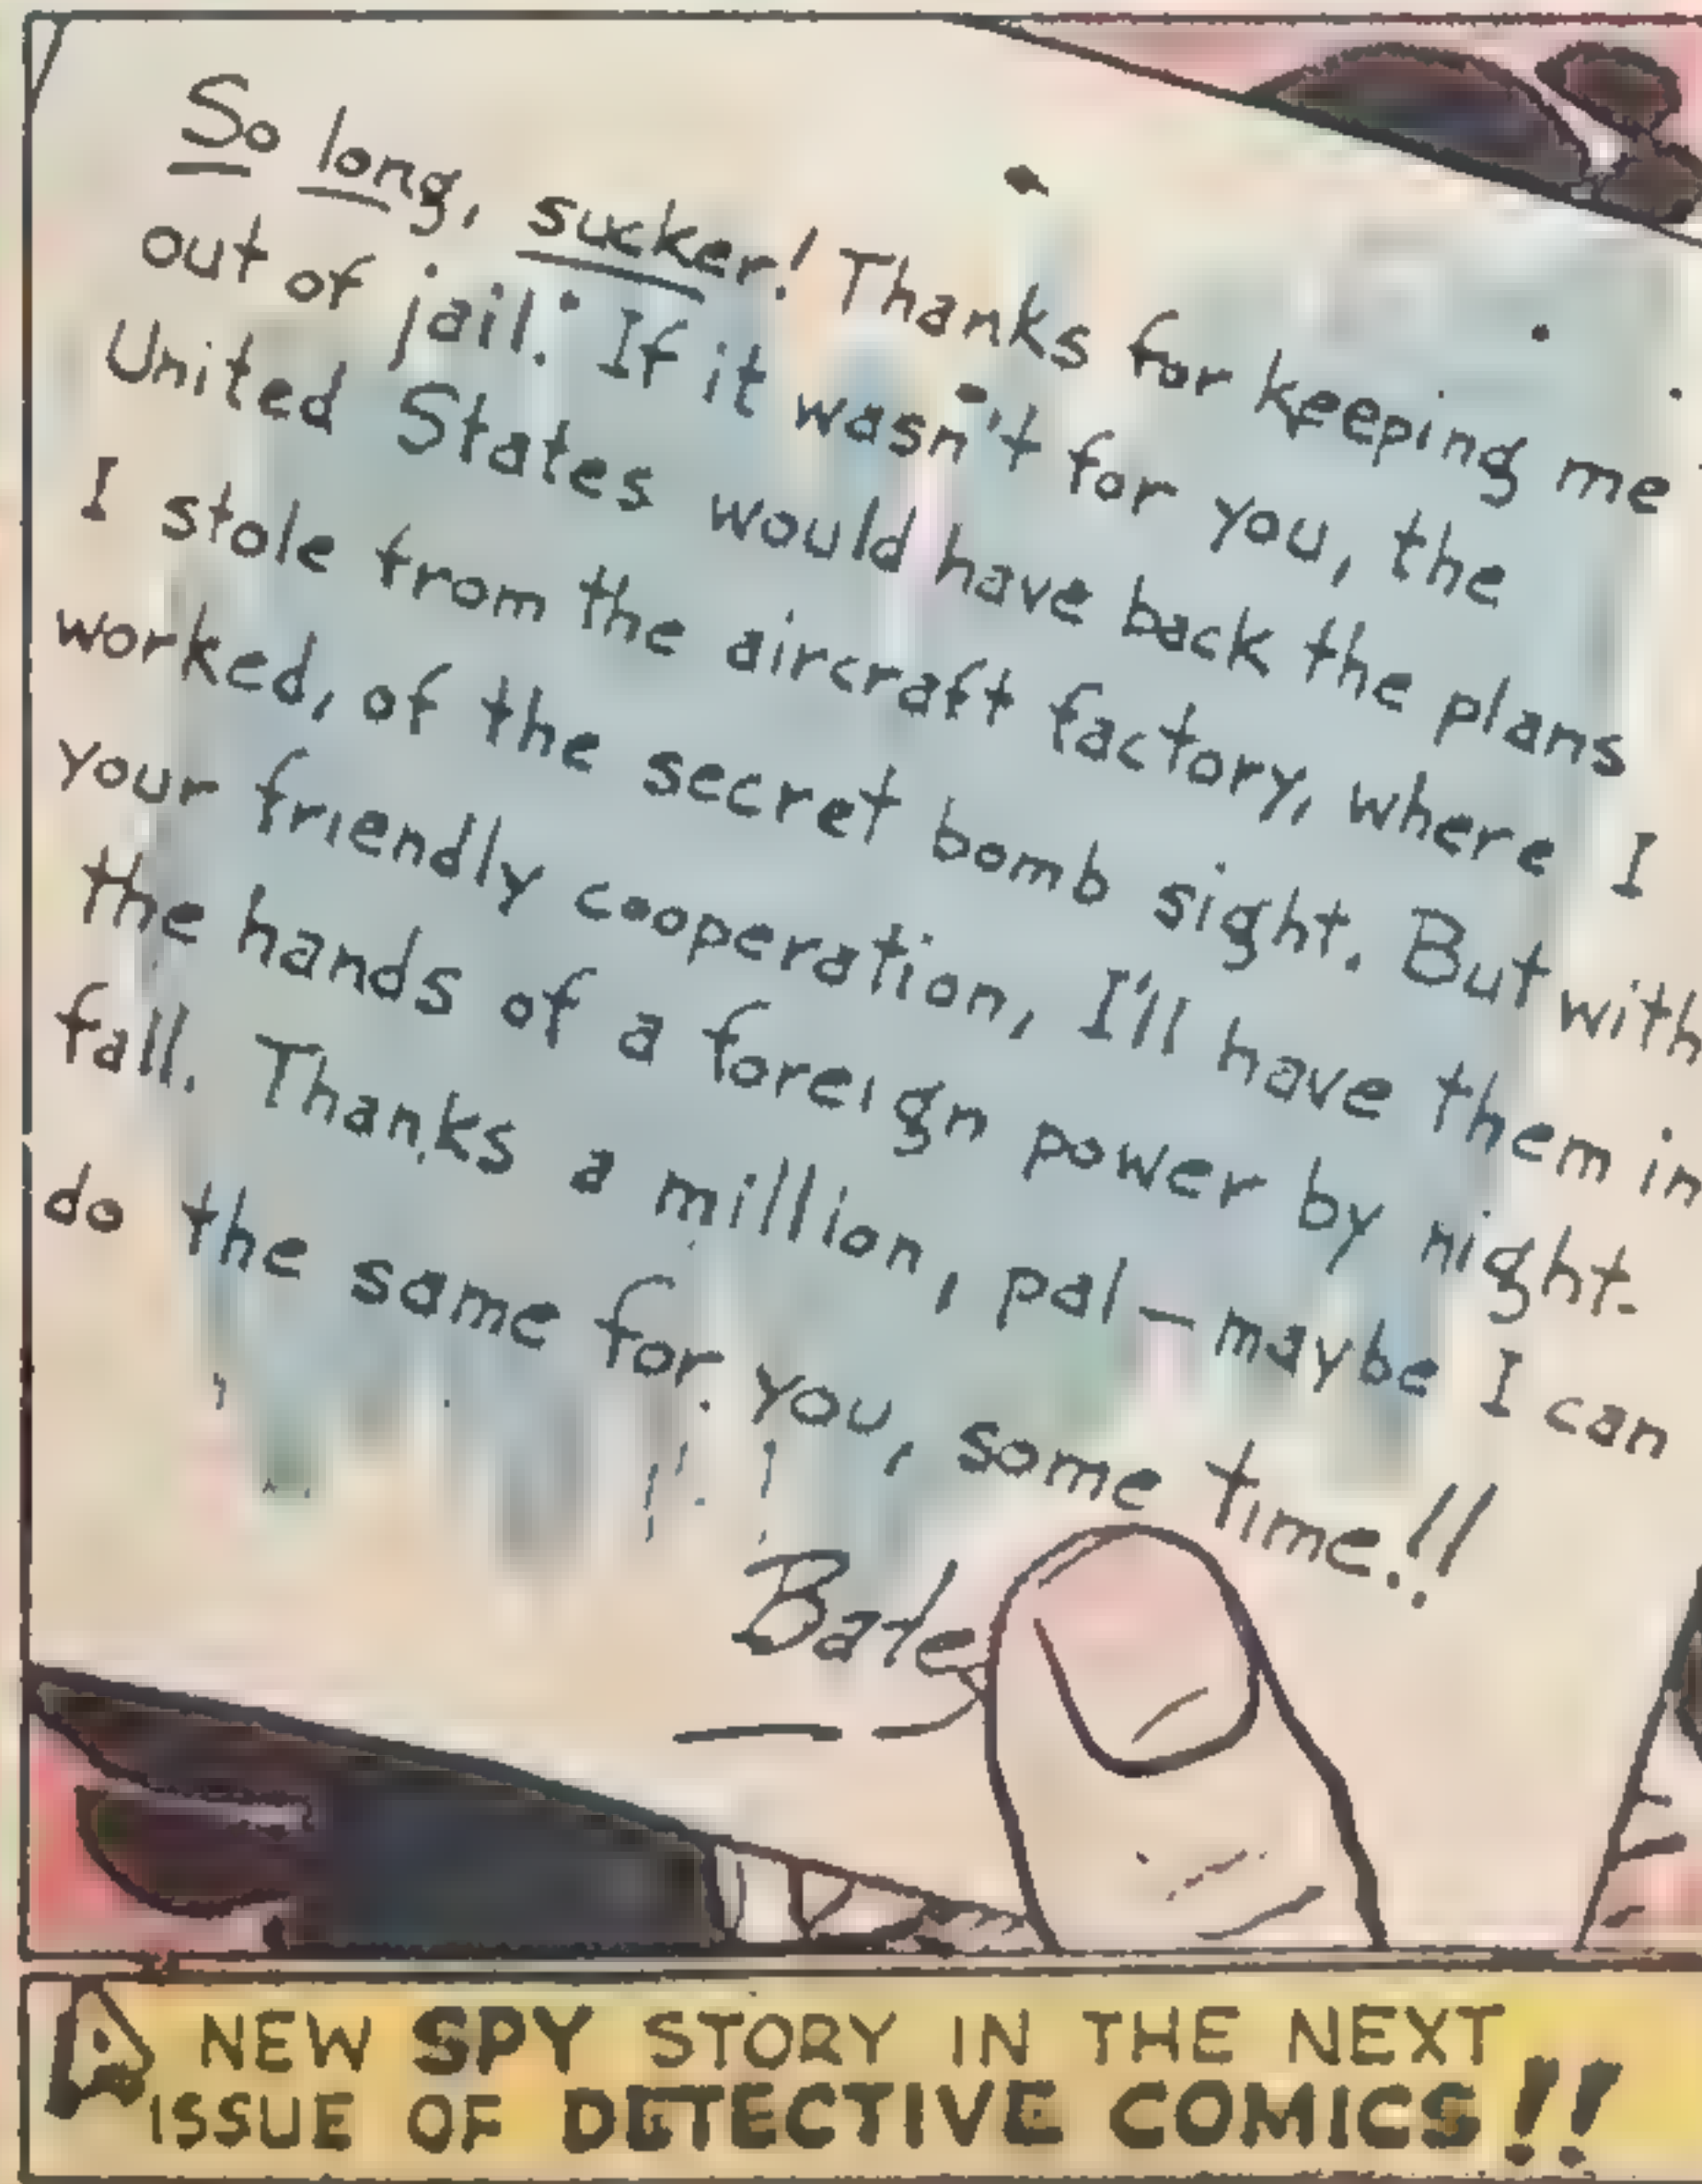 So long, sucker! Thanks for keeping me
out of jail. If it wasn't for you, the
United States would have back the plans
I stole from the aircraft factory, where I
worked, of the secret bomb sight. But with
your friendly cooperation, I'll have them in
the hands of a foreign power by night-
fall. Thanks a million, pal — maybe I can
do the same for you, some time!!
Bates
A NEW SPY STORY IN THE NEXT
ISSUE OF DETECTIVE COMICS!!